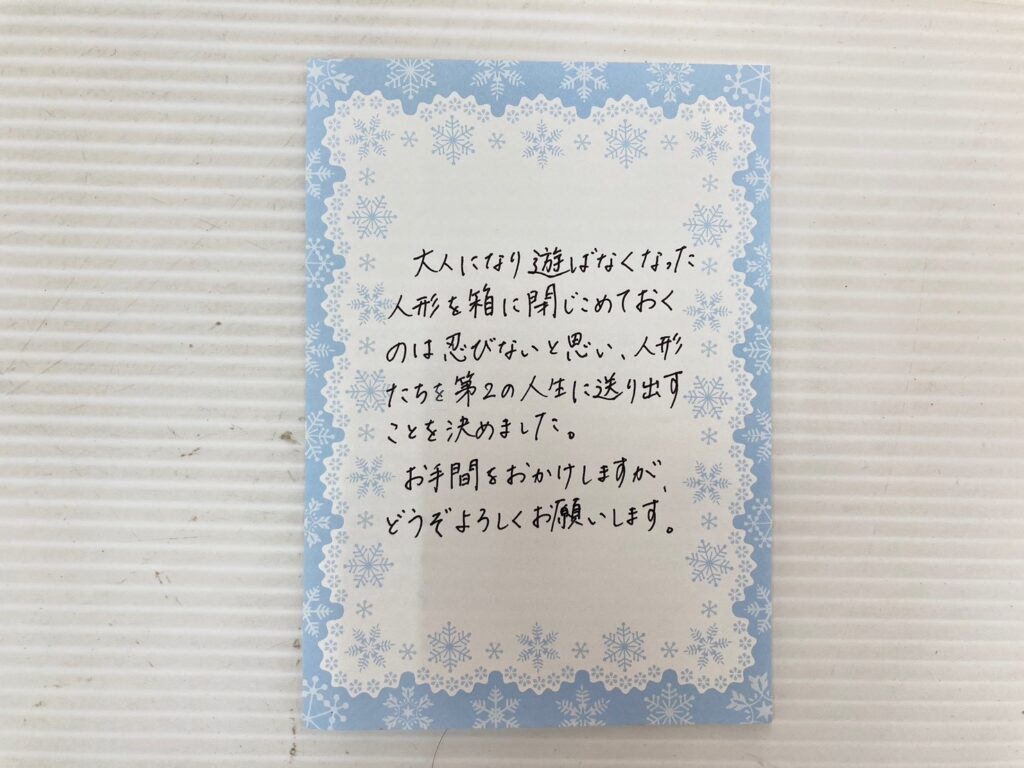 大人になり遊ばなくなった
人形を箱に閉じこめておく
のは忍びないと思い、人形
たちを第2の人生に送り出す
ことを決めました。
お手間をおかけしますが、
どうぞよろしくお願いします。